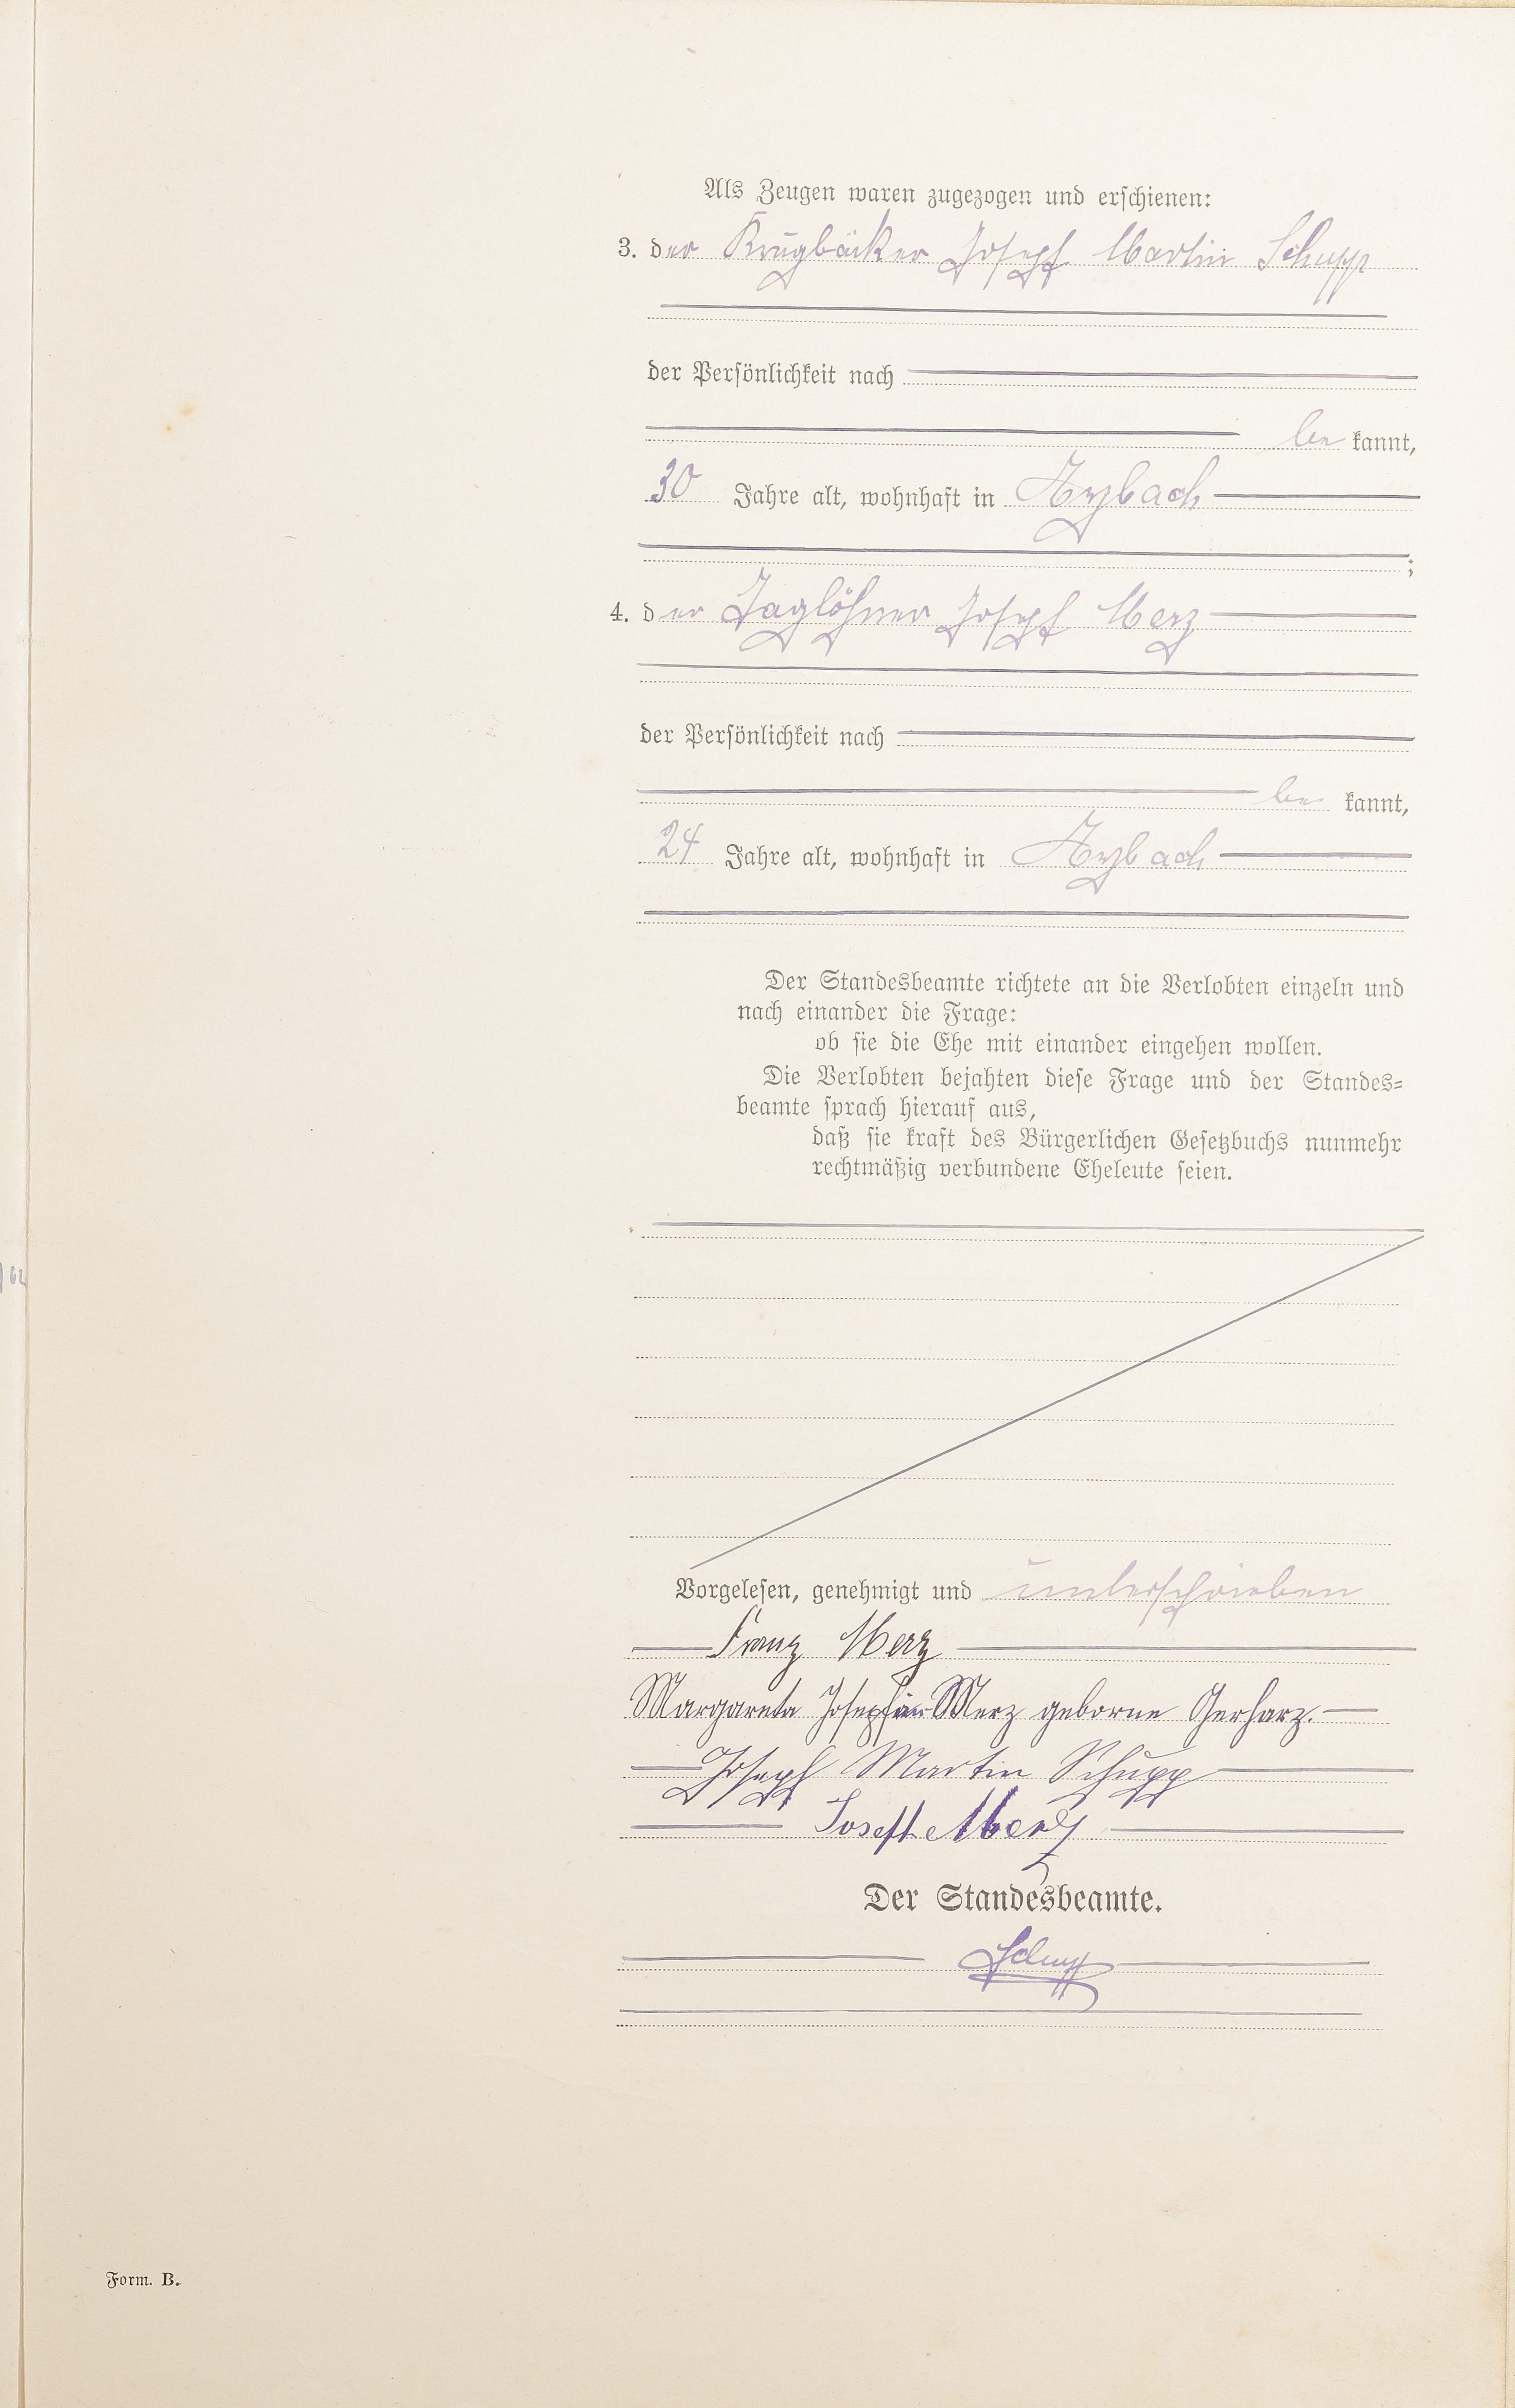 Als Zeugen waren zugezogen und erschienen:
3. der Krugbäcker Joseph Martin Schupp
der Persönlichkeit nach
be kannt,
30 Jahre alt, wohnhaft in Arzbach
;
4. der Taglöhner Joseph Merz
der Persönlichkeit nach
be kannt,
24 Jahre alt, wohnhaft in Arzbach
Der Standesbeamte richtete an die Verlobten einzeln und
nach einander die Frage:
ob sie die Ehe mit einander eingehen wollen.
Die Verlobten bejahten diese Frage und der Standes=
beamte sprach hierauf aus,
daß sie kraft des Bürgerlichen Gesetzbuchs nunmehr
rechtmäßig verbundene Eheleute seien.
Vorgelesen, genehmigt und unterschrieben
Franz Merz
Margareta Josephine Merz geborne Gerharz.
Joseph Martin Schupp
Josef Merz
Der Standesbeamte.
Schupp
Form. B.